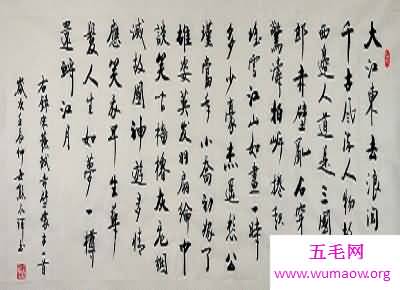 大江東去浪淘
千古風流人物故
西邊人道是三國
郎赤壁亂石穿
驚濤拍岸捲起
堆雪江山如畫一時
多少豪傑遥想公
瑾當年小喬初嫁了
雄姿英發羽扇綸巾
談笑間檣櫓灰飛烟
滅故國神遊多情
應笑我早生華
髮人生如夢一樽
還酹江月
右錄宋蘇軾
歲次
五毛网
www.wumaow.org